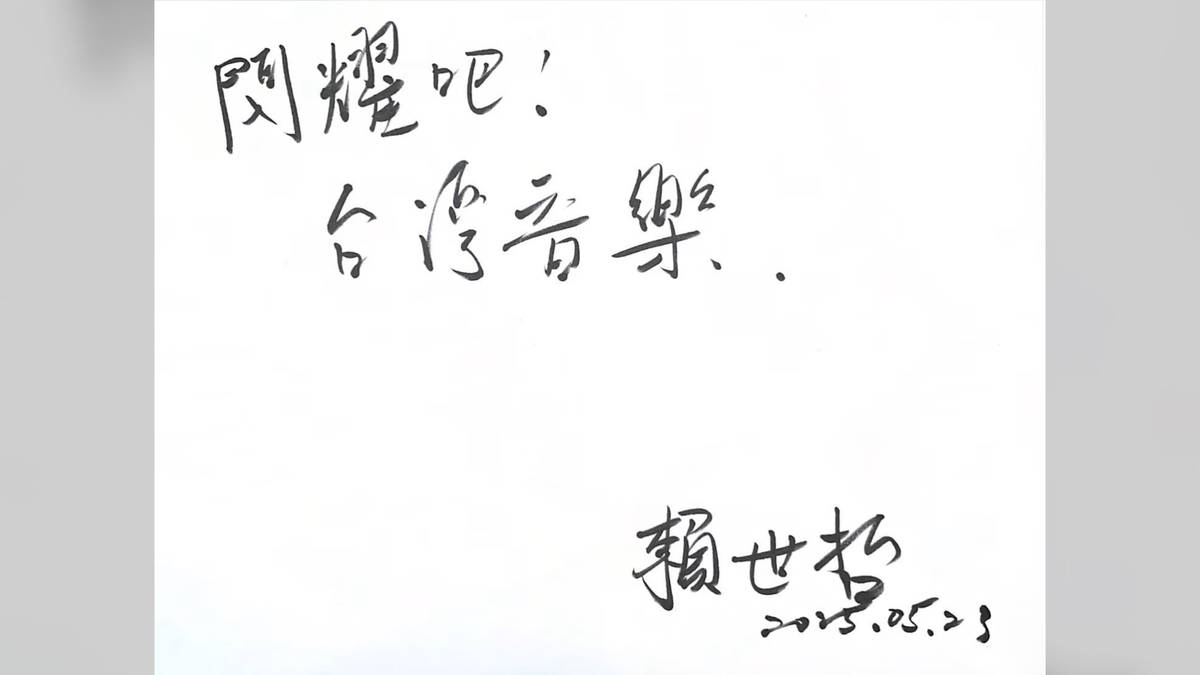 閃耀吧!
台灣音樂..
賴世哲
2025.05.23